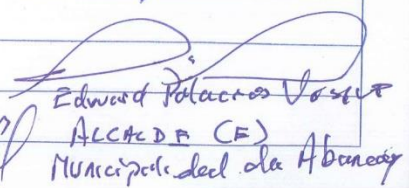 Edward Palacios
ALCALDE (E)
Municipalidad de Abancay